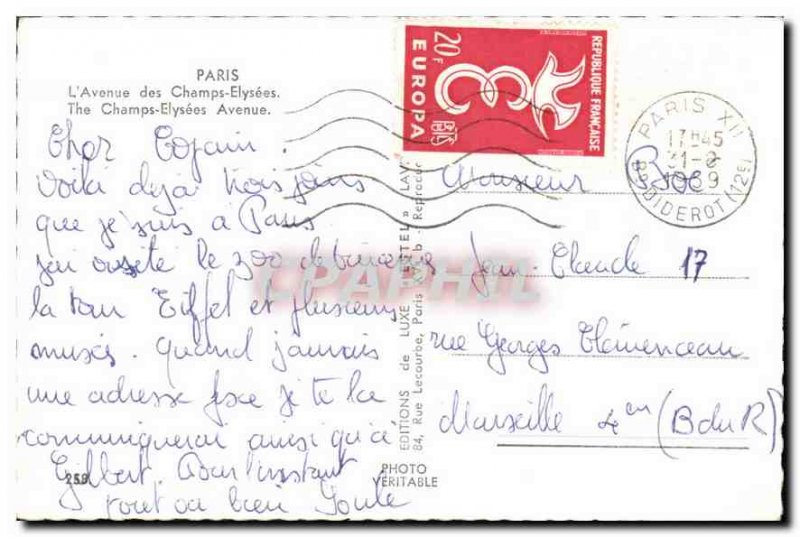 PARIS
L'Avenue des Champs-Elysées.
The Champs-Elysées Avenue.
Cher Copain.
Voilà déjà trois jours
que je suis à Paris
j'ai visité le zoo de Vincennes
la tour Eiffel et plusieurs
musés. quand j'aurais
une adresse fixe je te la
communiquerai ainsi qu'à
Gilbert. Pour l'instant
tout va bien
259
PHOTO
VÉRITABLE
EDITIONS de LUXE « ESTEL » LAV
84, Rue Lecourbe, Paris XV
Reproduc
REPUBLIQUE FRANÇAISE
20F
EUROPA
PARIS XII
17H45
31-8
1959
BD DIDEROT (12E)
Monsieur
Jean-Claude 17
rue Georges Clémenceau
Marseille 4em (B du R)
CPAPHIL